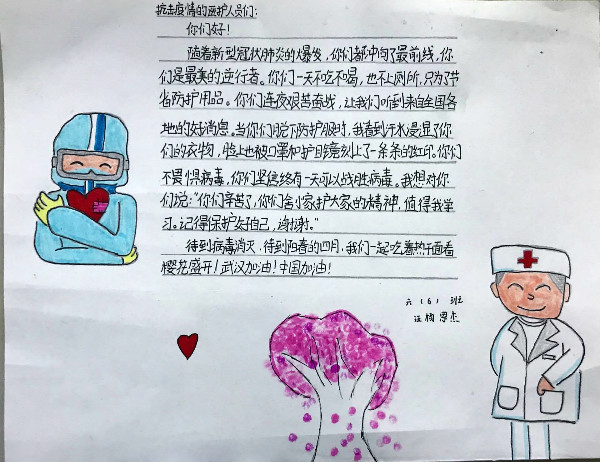 抗击疫情的医护人员们：
你们好！
随着新型冠状肺炎的爆发，你们都冲向了最前线，你
们是最美的逆行者。你们一天不吃不喝，也不上厕所，只为了节
省防护用品。你们连夜艰苦奋战，让我们听到来自全国各
地的好消息。当你们脱下防护服时，我看到汗水浸湿了你
们的衣物，脸上也被口罩和护目镜刻上了一条条的红印。你们
不畏惧病毒，你们坚信终有一天可以战胜病毒。我想对你
们说：“你们辛苦了，你们舍小家护大家的精神，值得我学
习。记得保护好自己，谢谢。”
待到病毒消灭，待到阳春的四月，我们一起吃着热干面看
樱花盛开！武汉加油！中国加油！
六（6）班
恩杰